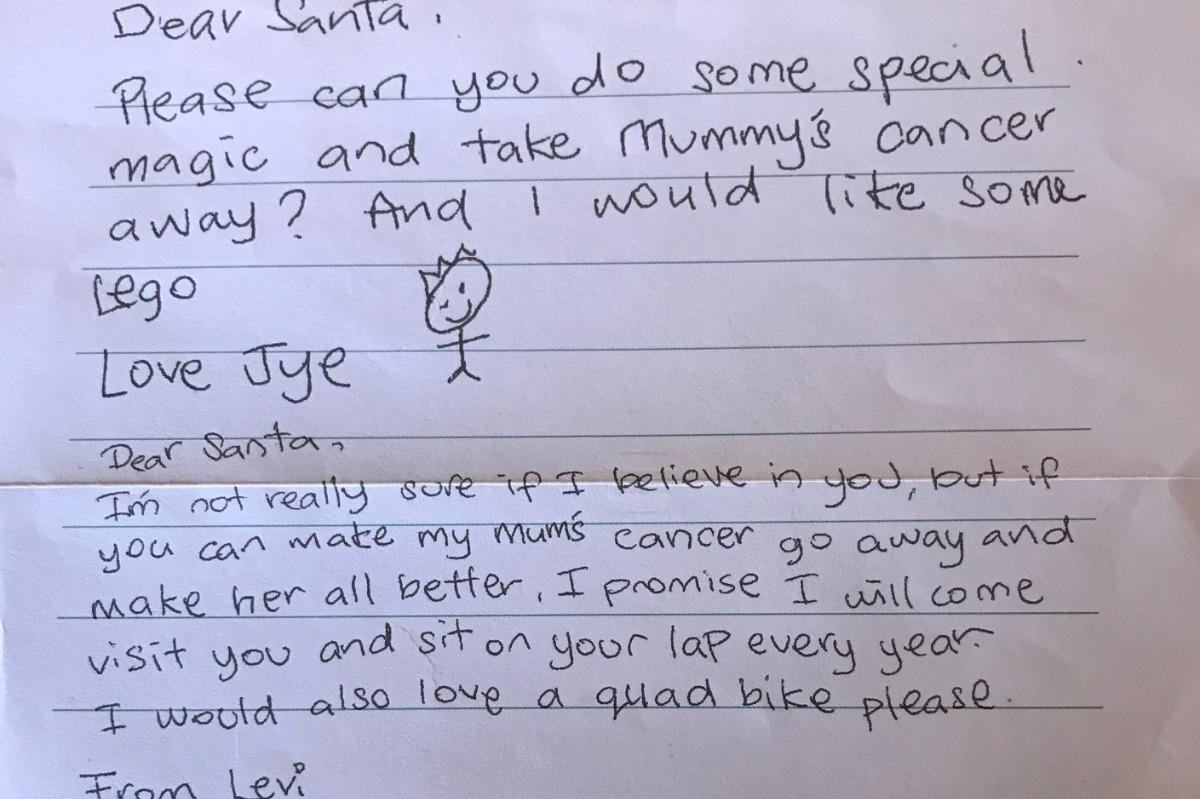 Dear Santa.
Please can you do some special.
magic and take Mummy's cancer
away? And I would like some
Lego
Love Jye
Dear Santa,
I'm not really sure if I believe in you, but if
you can make my mum's cancer go away and
make her all better, I promise I will come
visit you and sit on your lap every year.
I would also love a quad bike please.
From Levi